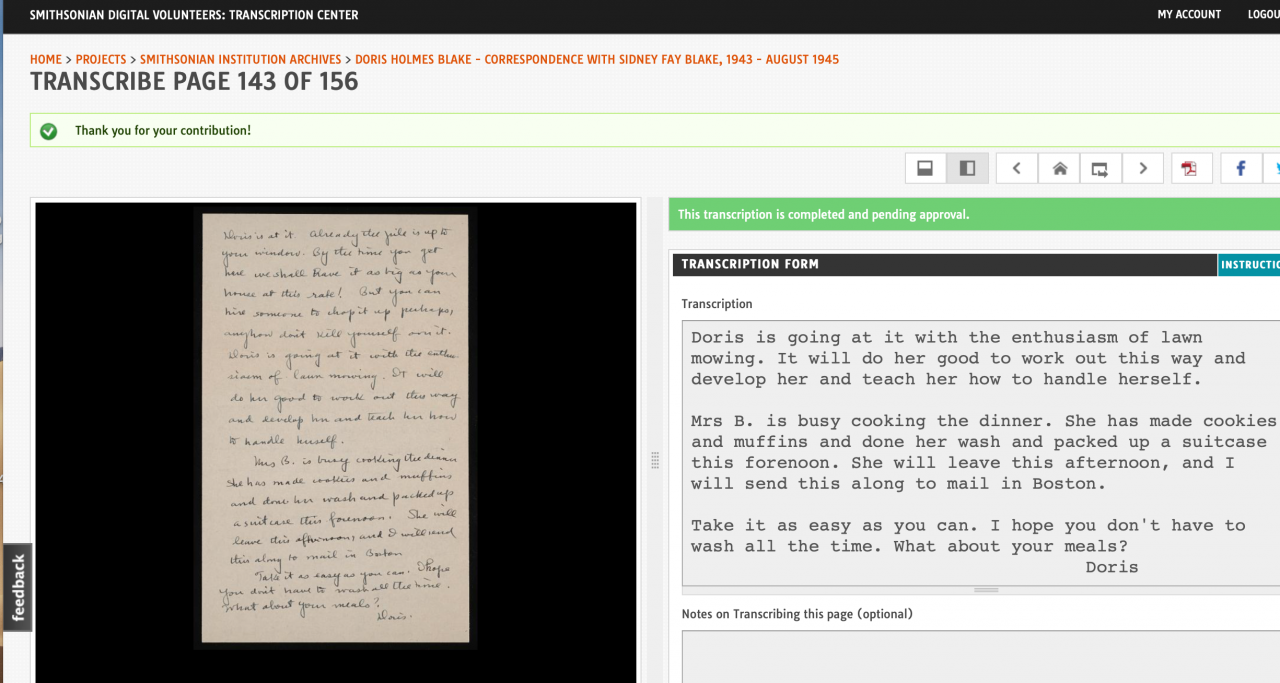 SMITHSONIAN DIGITAL VOLUNTEERS: TRANSCRIPTION CENTER
MY ACCOUNT
LOGOU
HOME > PROJECTS > SMITHSONIAN INSTITUTION ARCHIVES > DORIS HOLMES BLAKE - CORRESPONDENCE WITH SIDNEY FAY BLAKE, 1943 - AUGUST 1945
TRANSCRIBE PAGE 143 OF 156
Thank you for your contribution!
f
Doris is at it. Already the pile is up to
your window. By the time you get
here we shall have it as big as your
house at this rate! But you can
hire someone to chop it up perhaps,
anyhow don't kill yourself over it.
Doris is going at it with the enthu-
siasm of lawn mowing. It will
do her good to work out this way
and develop her and teach her how
to handle herself.
Mrs B. is busy cooking the dinner
She has made cookies and muffins
and done her wash and packed up
a suitcase this forenoon. She will
leave this afternoon, and I will send
this along to mail in Boston
Take it as easy as you can. I hope
you don't have to wash all the time.
What about your meals?
Doris.
This transcription is completed and pending approval.
TRANSCRIPTION FORM
INSTRUCTIO
Transcription
Doris is going at it with the enthusiasm of lawn
mowing. It will do her good to work out this way and
develop her and teach her how to handle herself.
Mrs B. is busy cooking the dinner. She has made cookies
and muffins and done her wash and packed up a suitcase
this forenoon. She will leave this afternoon, and I
will send this along to mail in Boston.
Take it as easy as you can. I hope you don't have to
wash all the time. What about your meals?
Doris
Notes on Transcribing this page (optional)
feedback